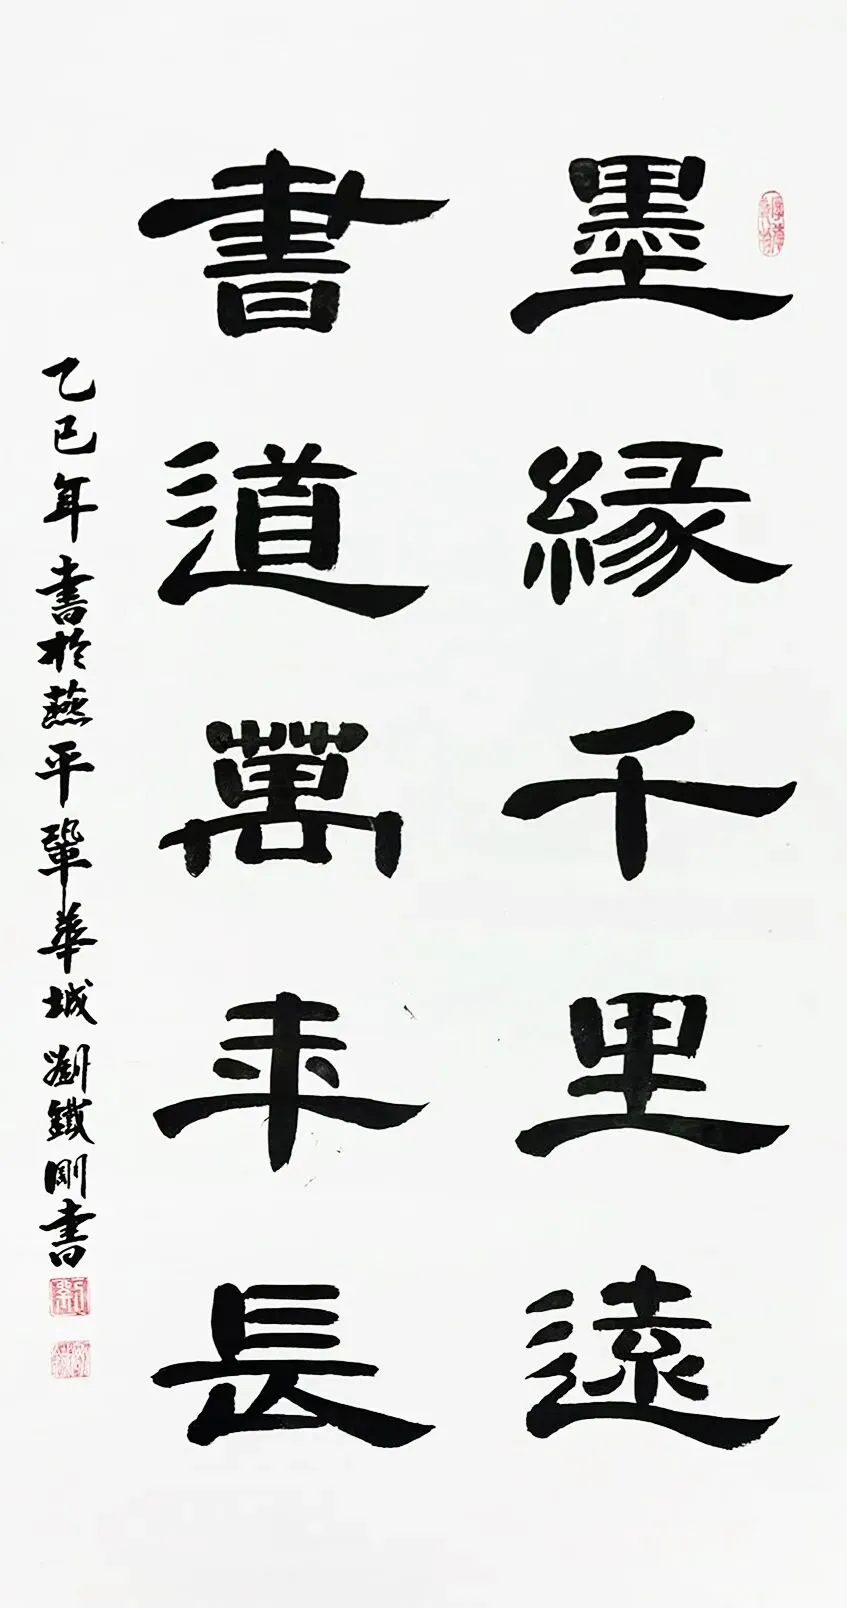 墨緣千里遠
書道萬年長
乙巳年書於燕平鞏華城劉鐵剛書